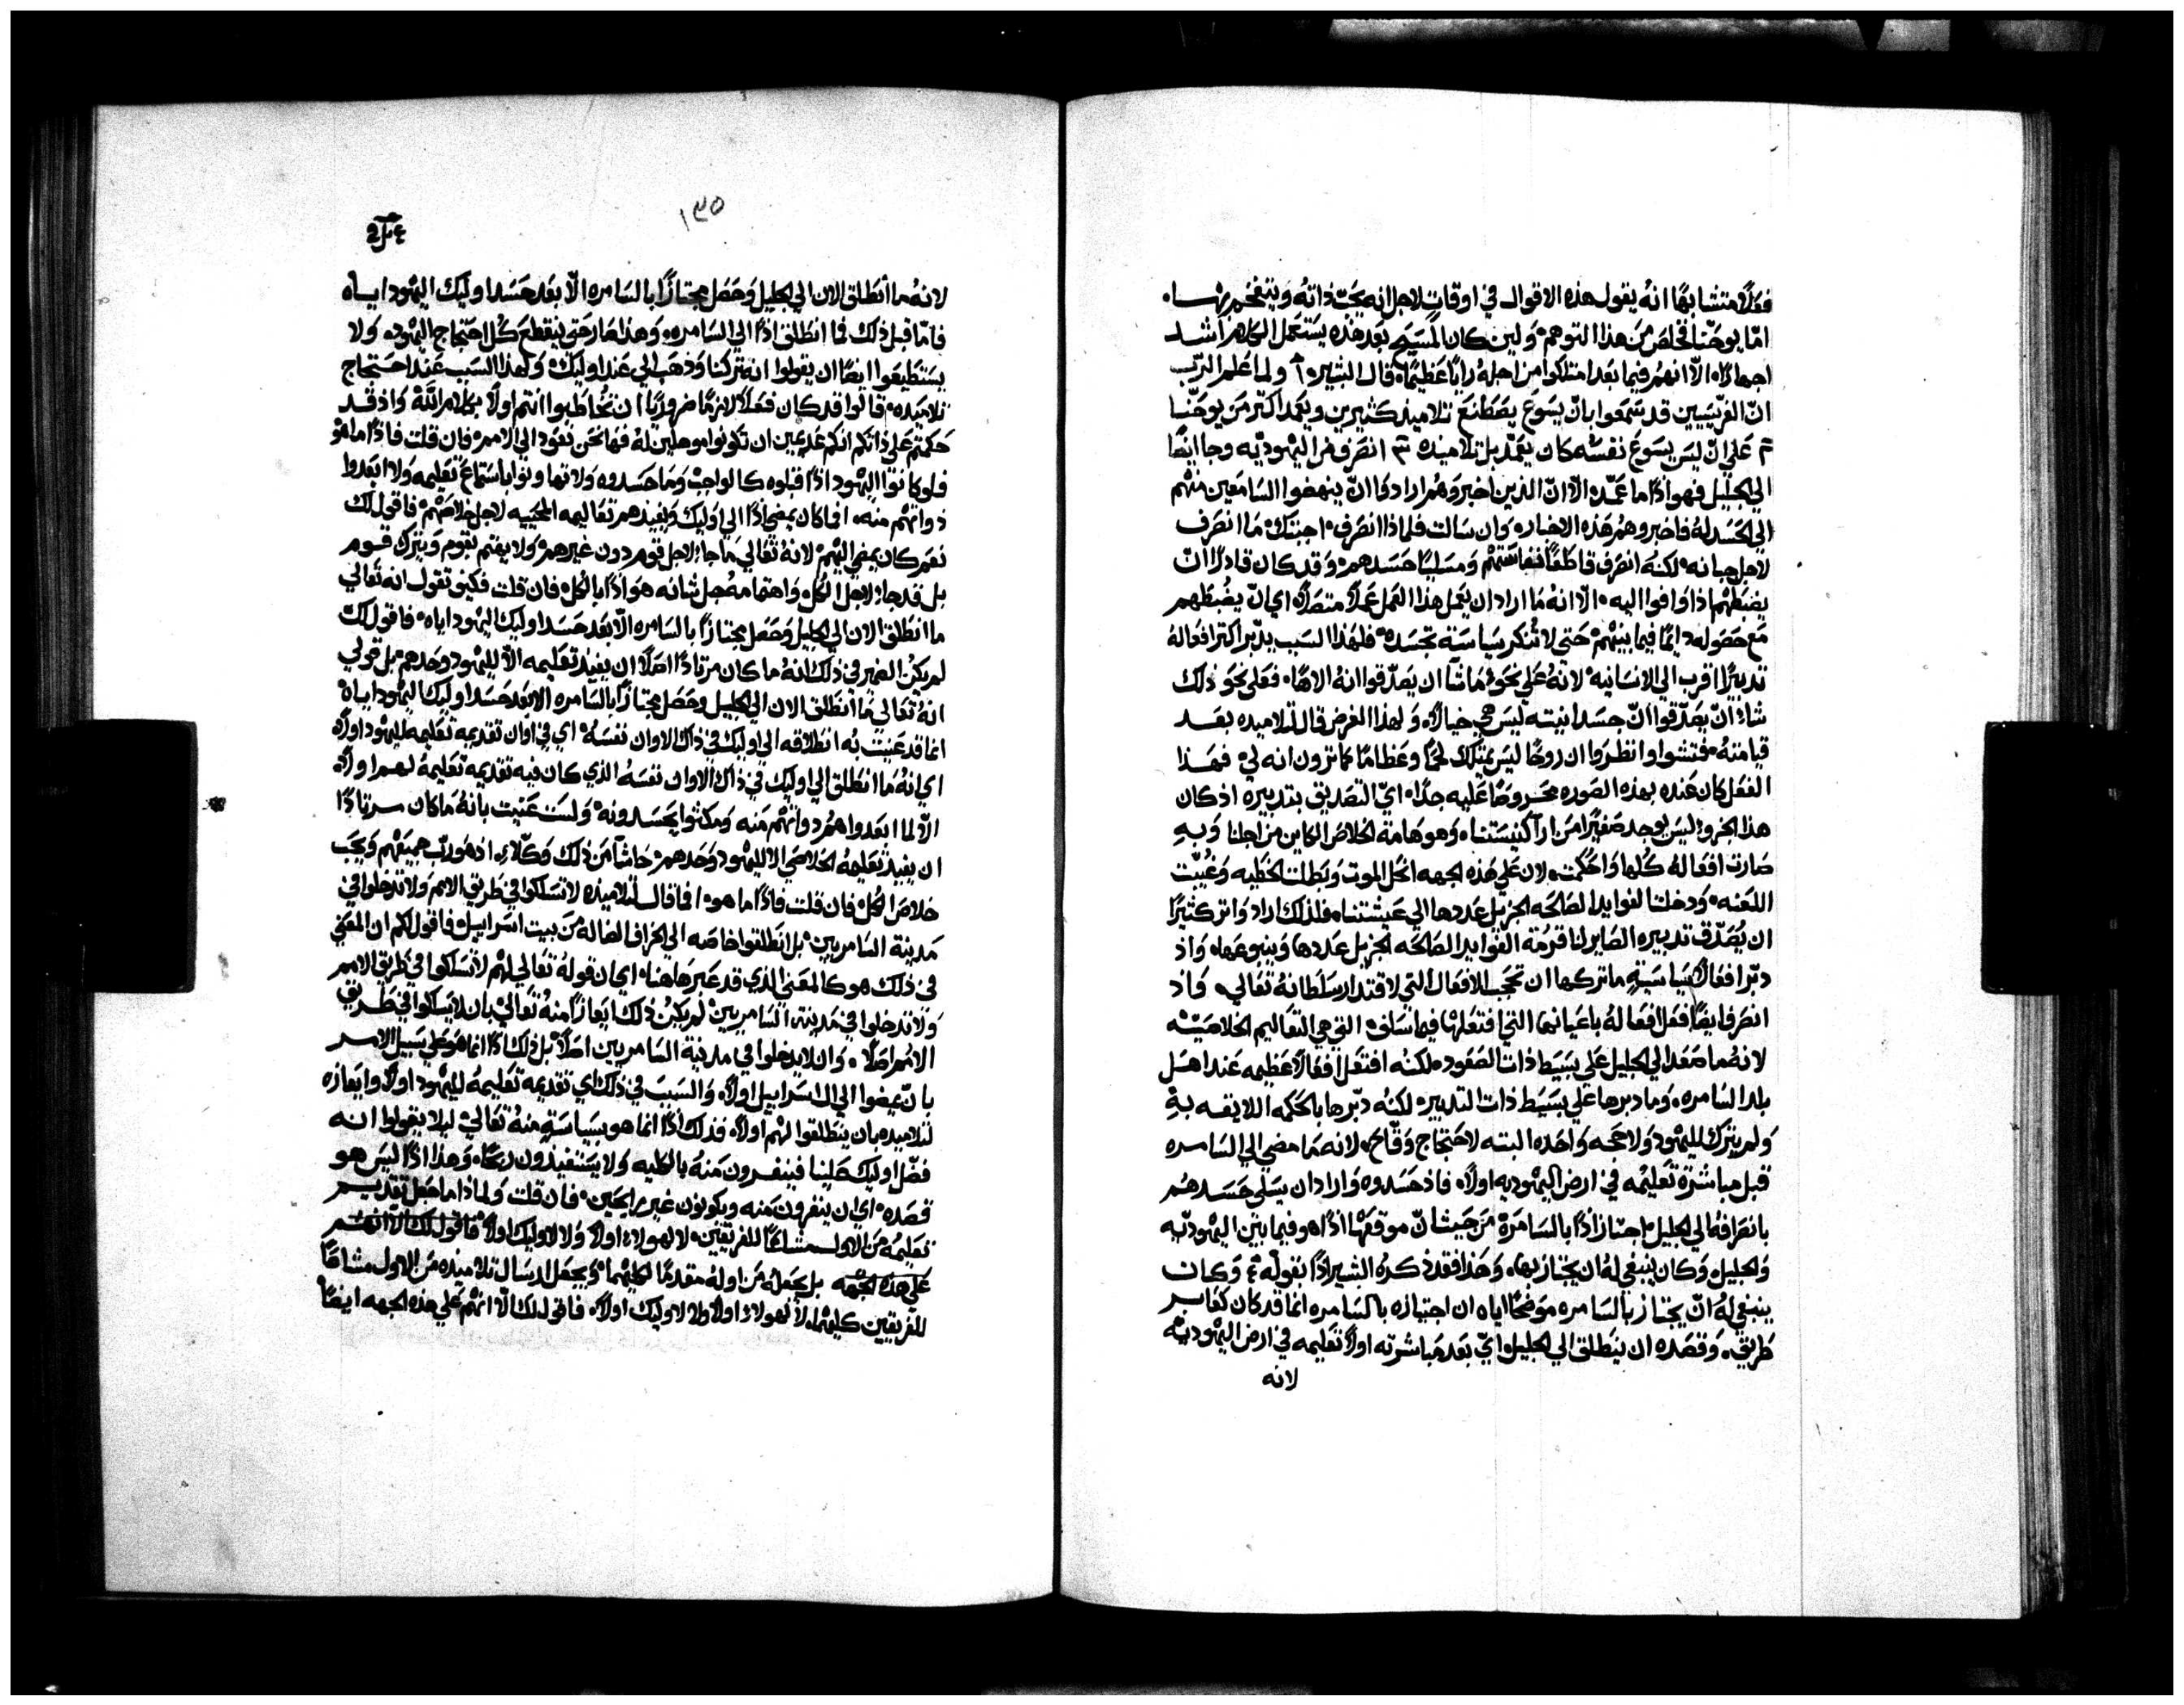 فعلاً متشابهًا انهُ يقول هذه الاقوال في اوقاتٍ لاجل انه يحبّ ذاتهُ ويتفخم بها.
امّا يوحنا فخلص من هذا التوهم. ولين كان المسيح بعد هذه يستعمل الكلام اشد
اجهارًا. الّا انهم فيما بعد امتلكوا من اجلهُ رايًا عظيمًا. قال البشير. ١ ولما علم الرّب
انّ الفرّيسيين قد سمعوا بانّ يسوع يصطنع تلاميذ كثيرين ويعمد اكثر من يوحنّا
٢ على انّ ليس يسوع نفسهُ كان يعمّد بل تلاميذه ٣ انصرف من اليهوديّه وجا ايضًا
الى الجليل فهو اذًا ما عمّد. الّا انّ الذين اخبروهم ارادوا انّ ينهضوا السامعين منهم
الى الحسد لهُ فاخبروهم هذه الاخبار. وان سالت فلماذا انصرف. اجبتك. ما انصرف
لاجل جبانه. لكنهُ انصرف قاطعًا نفاستهم ومسليًا حسدهم. وقد كان قادرًا انّ
يضبطهم اذا وافوا اليه. الّا انهُ ما اراد ان يعمل هذا العمل عملاً متصلاً. اي انّ يضبطهم
مع حصوله دايمًا فيما بينهم. حتى لا تُنكر سياسة تجسده. فلهذا السبب يدبّر اكثر افعالهُ
تدبيرًا اقرب الى الانسانيه. لانهُ على نحوِ ما شآ ان يصدّقوا انهُ الاهًا. فعلى نحو ذلك
شاء انّ يصدّقوا انّ جسدانيته ليس هي خيالاً. ولهذا الغرض قال لتلاميذه بعد
قيامتهُ. فتشوا وانظروا ان روحًا ليس يمتلك لحمًا وعظامًا كما ترون انه لي. فهذا
الفعل كان عنده بهذه الصوره محروصًا عليه جدًا. اي التصديق بتدبيره اذ كان
هذا الجزو ليس يوجد صغيرًا من ارآ كنيستنا. وهو هامة الخلاص الكاين من اجلنا وبهِ
صارت افعالهُ كلها واحكمت. لان على هذه الجهه انحل الموت وبطلت الخطيه وغُيبّت
اللعنه. ودخلت الفوايد الصالحه الجزيل عددها الى عيشتنا. فلذلك اراد واثر كثيرًا
ان يُصدّق تدبيره الصاير لنا قرمة الفوايد الصالحه الجزيل عددها وينبوعها. واذ
دبّر افعالاً سياسيّةٍ ما تركها ان تحجب الافعال التي لاقتدار سلطانهُ تعالي. واذ
انصرف ايضًا فعل افعالهُ باعيانها التي افتعلها فيما سلف. التي هي التعاليم الخلاصيّه
لانهُ ما صعد الى الجليل على بسيط ذات الصعود. لكنه افتعل افعالاً عظيمه عند اهل
بلد السامره. وما دبرها على بسيط ذات التدبير. لكنهُ دبّرها بالحكمه اللايقه بهِ
ولم يترك لليهود ولا حجه واحده البته لاحتجاج وقّاح. لانه ما مضي الى السامره
قبل مباشرة تعليمه في ارض اليهوديه اولاً. فاذ حسدوه واراد ان يسلي حسدهم
بانصرافهُ الى الجليل. اجتاز اذًا بالسامرة من حيث انّ موقعها اذًا هو فيما بين اليهوديّه
والجليل. وكان ينبغي لهُ ان يجتاز بها. وهذا فقد ذكرهُ البشير اذًا بقوله ٤ وكان
ينبغي لهُ انّ يجتاز بالسامره موضحًا اياه ان اجتيازه بالسامره انما قد كان كعابر
طريق. وقصده ان ينطلق الى الجليل. ايّ بعد مباشرته اولاً تعليمه في ارض اليهوديّه
لانه
١٣٥
لانهُ ما انطلق الان الى الجليل وحصل مجتازًا بالسامره الّا بعد حسد اوليك اليهود اياه
فامّا قبل ذلك فما انطلق اذًا الى السامره. وهذا صار حتى ينقطع كُل احتجاج اليهود. ولا
يستطيعوا ايضًا ان يقولوا انه تركنا وذهب الى عند اوليك. ولهذا السبب عند احتجاج
تلاميذه. قالوا قد كان فعلاً لازمًا ضروريًا ان تُخاطبوا انتم اولاً بكلام اللّه واذ قد
حكمتم على ذاتكم انكم غير ان تكونوا موهلين لهُ فها نحن نعود الى الامم. فان قلت فاذًا ما هو
فلو كانوا اليهود اذًا قبلوه كالواجب وما حسدوه ولا تهاونوا باستماع تعليمه ولا ابعدوا
ذواتهم منه. افما كان يمضي اذًا الى اوليك ويفيدهم تعاليمه المحييه لاجل خلاصهم. فاقول لك
نعم كان يمضي اليهم. لانهُ تعالى ما جاء لاجل قوم دون غيرهم. ولا يهتم لقوم ويترك قوم
بل قد جاء لاجل الكل. واهتمامهُ جل شانه هو اذًا بالكل. فان قلت فكيف تقول انه تعالي
ما انطلق الان الى الجليل وحصل مجتازًا بالسامره الّا بعد حسد اوليك اليهود اياه. فاقول لك
لم يكن الضمير في ذلك انهُ ما كان مرتادًا اصلاً ان يفيد تعليمه الّا لليهود وحدهم. بل قولي
انهُ تعالي ما انطلق الان الى الجليل وحصل مجتازًا بالسامره الا بعد حسد اوليك اليهود اياهُ
انما قد عنيت بُه انطلاقه الى اوليك في ذلك الاوان نفسهُ. اي في اوان تقديمه تعليمه لليهود اولاً.
اي انهُ ما انطلق الى اوليك في ذاك الاوان نفسهُ الذي كان فيه تقديمه تعليمهُ لهم اولاً.
الّا لما ابعدوا هم ذواتهم منه ومكثوا يحسدونه. ولست عنيت بانهُ ما كان مرتادًا
ان يفيد تعليمهُ الخلاصي الا لليهود وحدهم. حاشا من ذلك وكلّا. اذ هو ربّ جميعهم ويحب
خلاص الكل. فان قلت فاذًا ما هو. افما قال لتلاميذه لا تسلكوا في طريق الامم ولا تدخلوا في
مدينة السامريين. بل انطلقوا خاصه الى الخراف الضاله من بيت اسراييل. فاقول لكم ان المعني
في ذلك هو كالمعني الذي قد عبر هاهنا. اي ان قولهُ تعالى لهم لا تسلكوا في طريق الامم
ولا تدخلوا في مدينة السامريين لم يكن ذلك ايعازًا منهُ تعالي بان لا يسلكوا في طريق
الامم اصلاً. وان لا يدخلوا في مدينة السامريين اصلاً. بل ذلك اذًا انما هو على سبيل الامر
بانّ يمضوا الى ال اسراييل اولاً. والسبب في ذلك اي تقديمه تعليمهُ لليهود اولاً وايعازه
لتلاميذه بان ينطلقوا لهم اولاً. فذلك اذًا انما هو بسياسةٍ منهُ تعالي. ليلا يقولوا انه
فضّل اوليك علينا فينفرون منهُ بالكليه ولا يستفيدون ربحًا. وهذا اذًا ليس هو
قصده. اي ان ينفرون منه ويكونون غير رابحين. فان قلت ولماذا ما جعل تقديم
تعليمُه من الاول مشاعًا للفريقين. لا لهولاء اولاً ولا لاوليك اولاً. فاقول لك الّا انهم
على هذه الجهه بل جعلهُ من اوله مقدمًا لكليهما. ويجعل ارسال تلاميذه من الاول مشاعًا
للفريقين كليهما. لا لهولاء اولاً ولا لاوليك اولاً. فاقول لك الّا انهم على هذه الجهه ايضًا